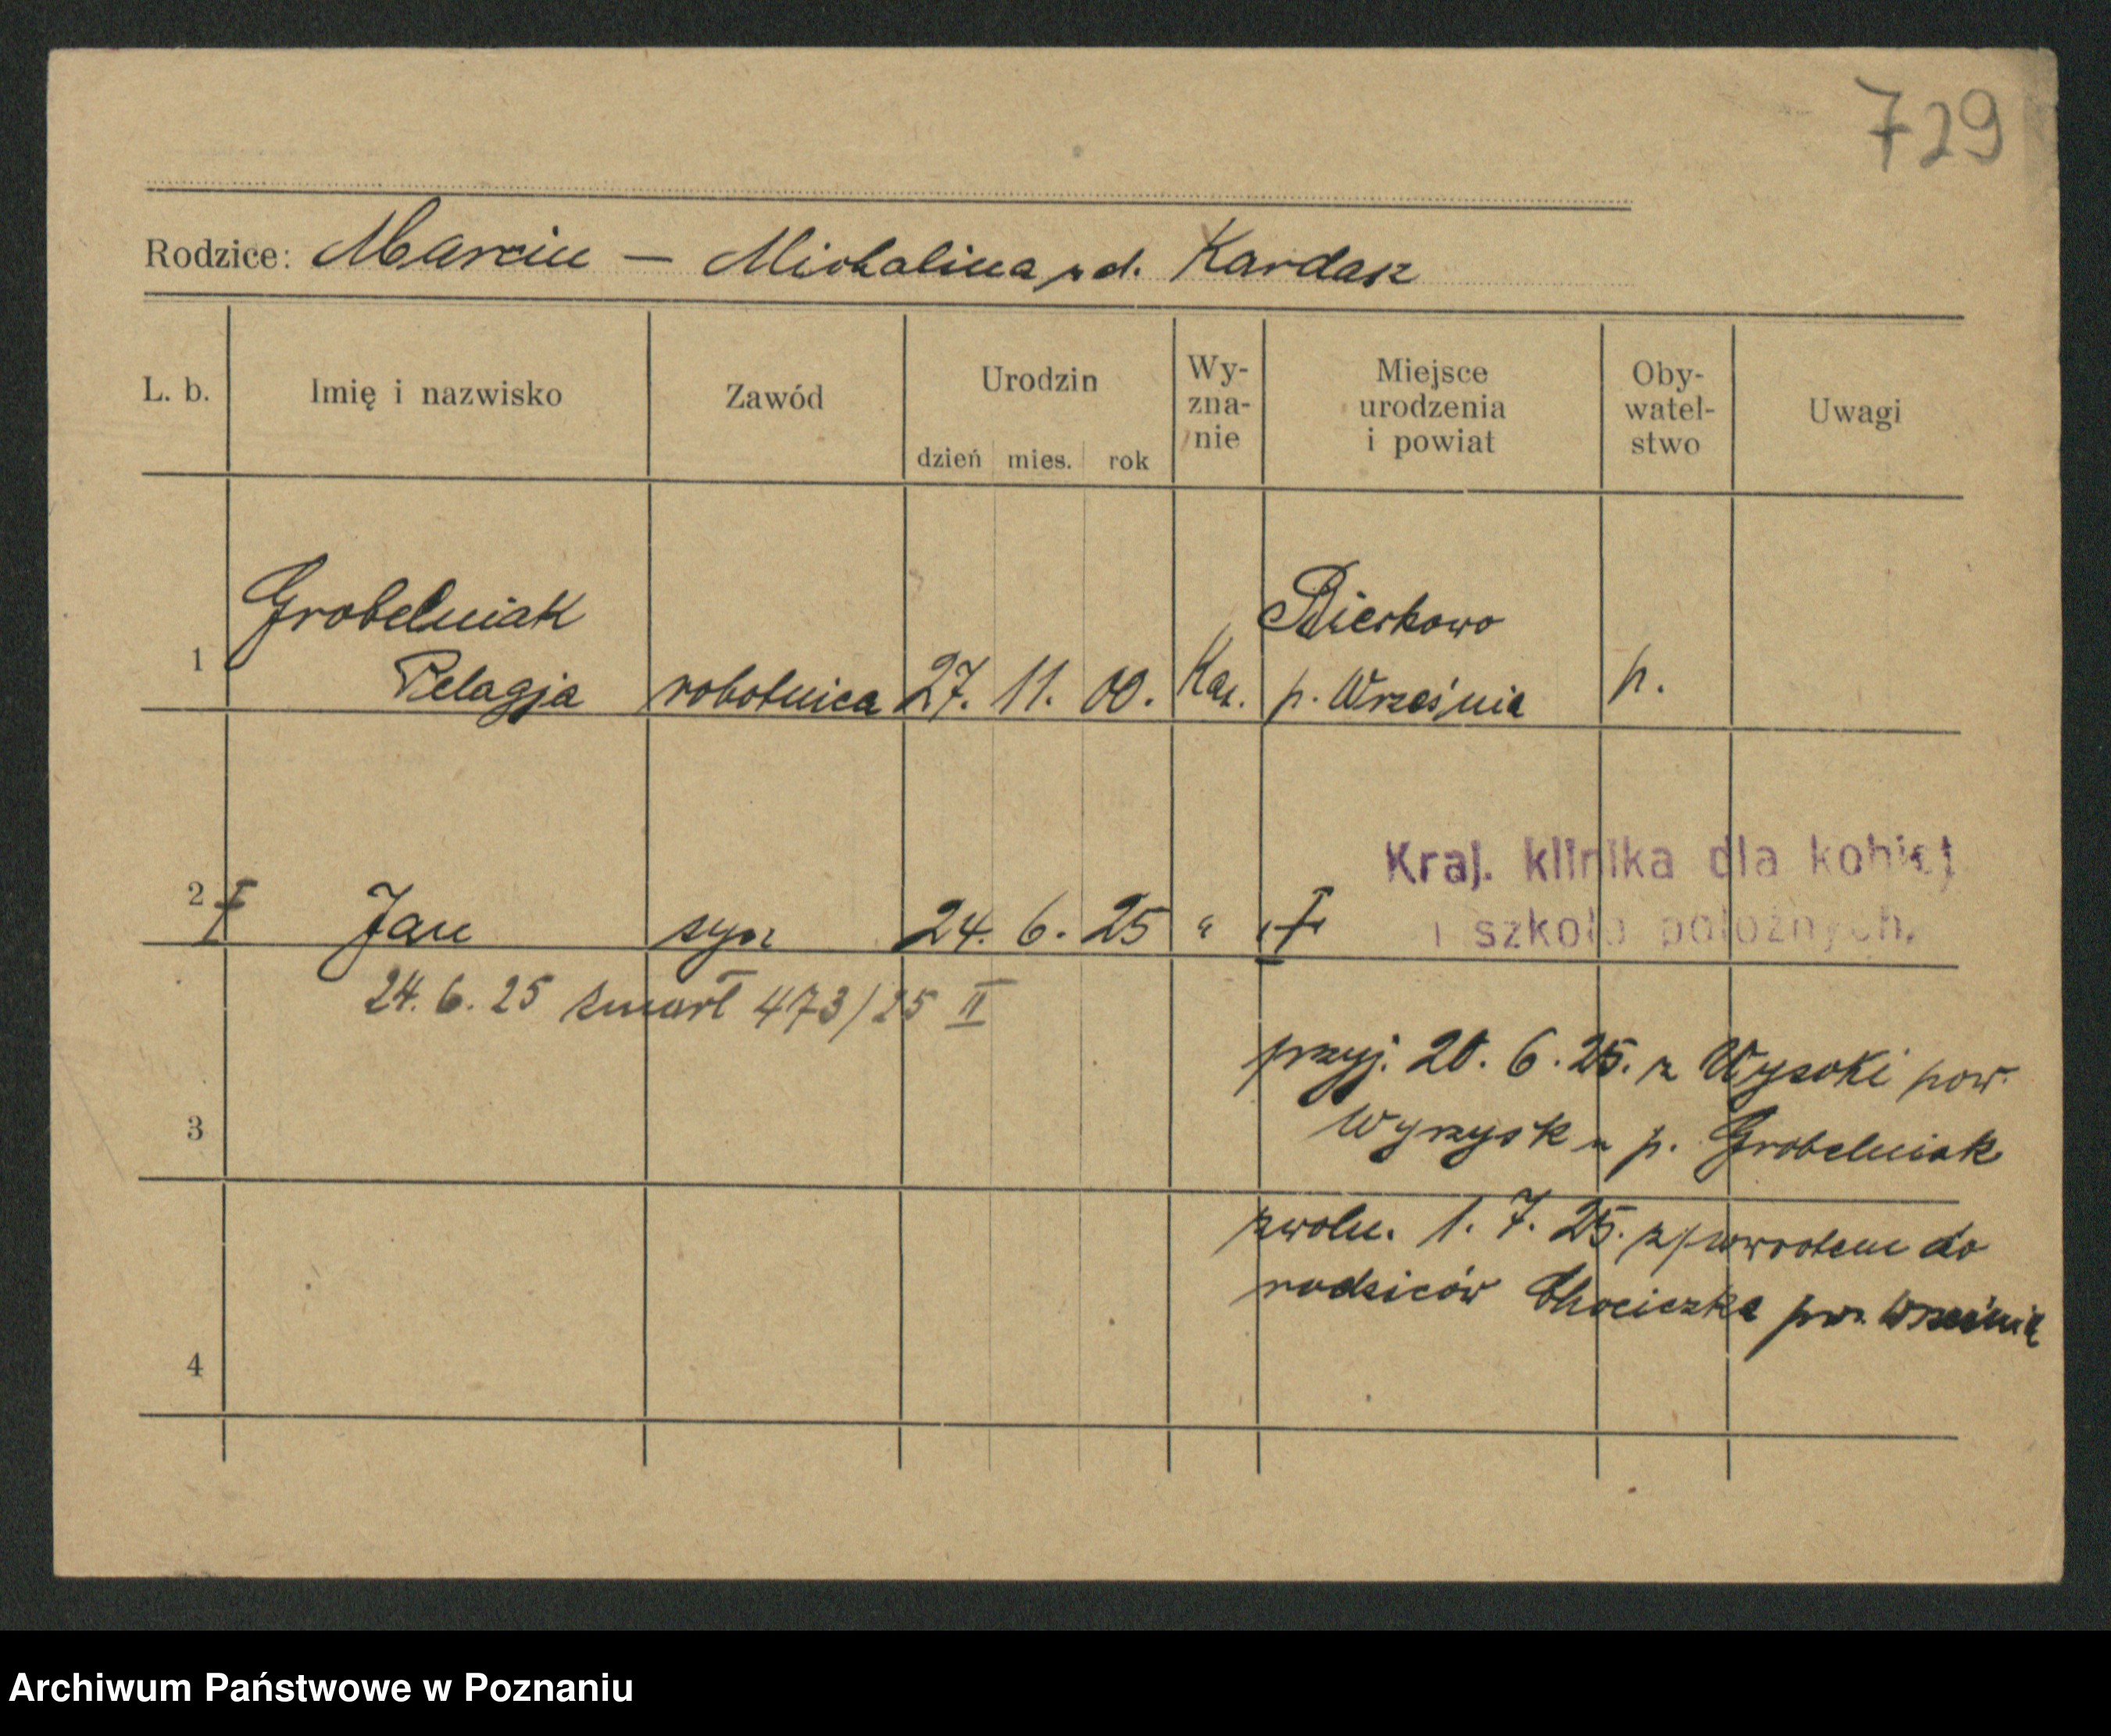 729
Rodzice: Marcin — Michalina zd. Kardasz
L. b.
Imię i nazwisko
Zawód
Urodzin
dzień mies. rok
Wy-
zna-
nie
Miejsce
urodzenia
i powiat
Oby-
watel-
stwo
Uwagi
1 Grobelniak
Pelagja robotnica 27. 11. 00. Kat. p. Września p.
Kraj. klinika dla kobiet
i szkoła położnych.
2 Jan syn 24. 6. 25 "
24. 6. 25 zmarł 473/25 II
przyj. 20. 6. 25. z Wysoki pow.
3 Wyrzysk u p. Grobelniak
zwoln. 1. 7. 25. z powrotem do
rodziców Chociczka pow. Września
4
Archiwum Państwowe w Poznaniu